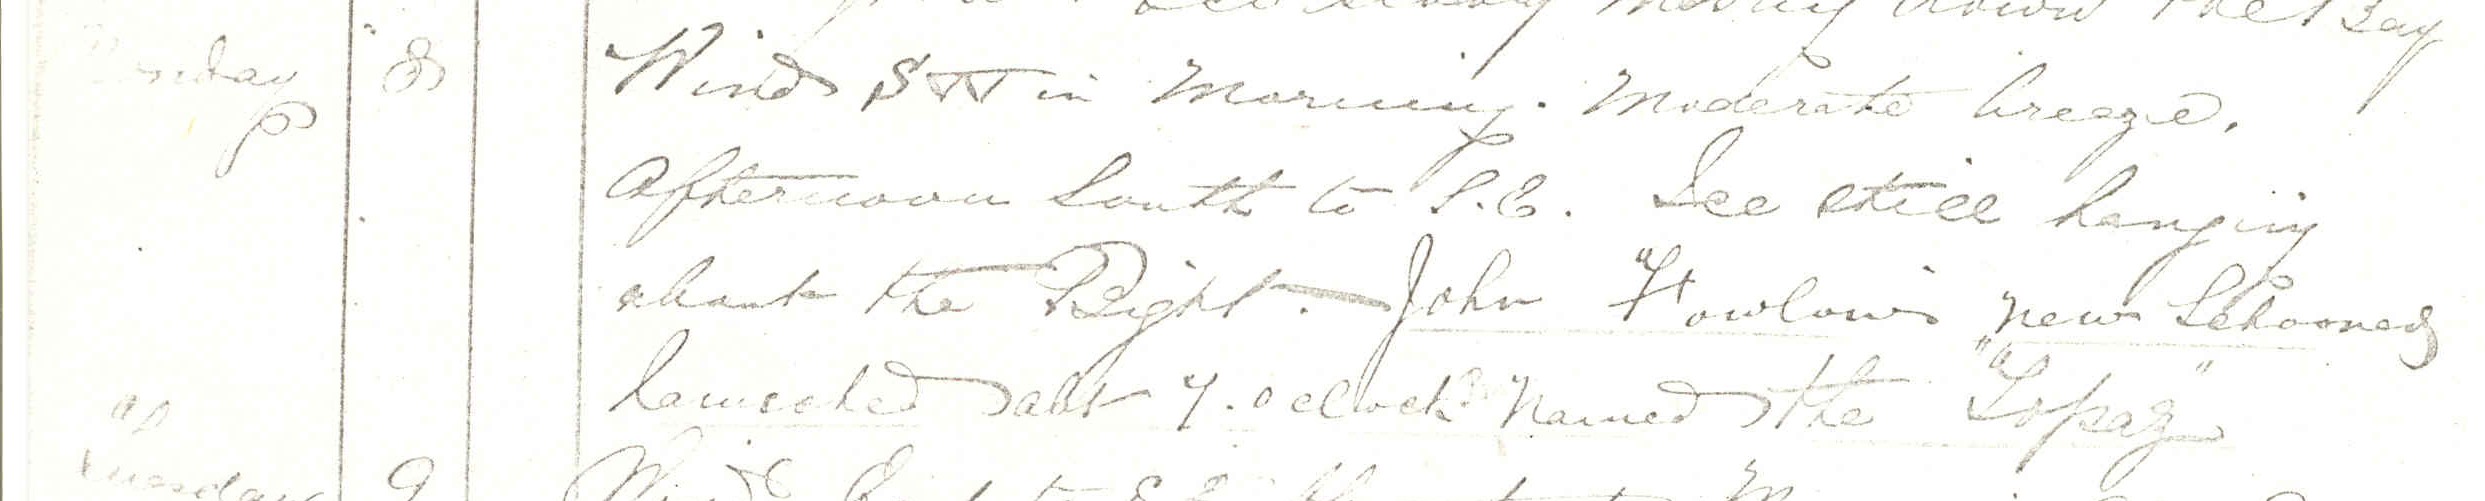 moving down the Bay
Monday 8 Wind SW in Morning. Moderate breeze.
Afternoon South to S.E. Ice still hanging
about the Bight. John Fowlow's new Schooner
launched abt 7. oclock named the "Topaz"
Tuesday 9 Wind